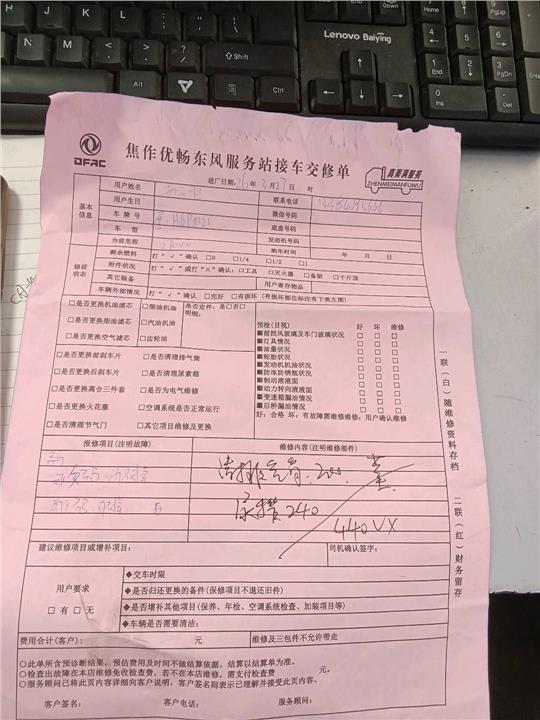 Lenovo Baiying
Shift
Alt
Ctrl
End
Home
PgUp
PgDn
Ins
DFAC
焦作优畅东风服务站接车交修单
真美满服务
ZHENMEIMANFUWU
进厂日期: 年3月27日 时
基本信息
用户姓名
联系电话
用户生日
微信号码
车牌号
底盘号
车型
发动机号码
当前里程
购车时间 年 月 日
修前状态
剩余燃油 打“√”确认 □0 □1/4 □1/2 □1
附件状况 打“√”或打“×”确认:□工具 □灭火器 □备胎 □千斤顶
其它装备
用户寄存物品
车辆外部情况 打“√”确认 □完好 □有损坏(有损坏部位标注有下表左图)
□是否更换机油滤芯 □柴油机油 是否定件:是□否□
明细:
□是否更换柴油滤芯 □汽油机油
□是否更换空气滤芯 □齿轮油
□是否更换前刹车片 □是否清理排气筒
□是否更换后刹车片 □是否清理尿素箱
□是否更换离合三件套 □是否为电气维修
□是否更换火花塞 □空调系统是否正常运行
□是否清理节气门 □其它项目维修及更换
预检(目视) 好 坏 维修
■前挡风玻璃及车门玻璃状况 □ □ □
■灯具情况 □ □ □
■油量状况 □ □ □
■轮胎状况 □ □ □
■发动机机油状况 □ □ □
■防冻防锈瓶状况 □ □ □
■制动液液面 □ □ □
■动力转向液液面 □ □ □
■变速箱漏油情况 □ □ □
■后桥漏油情况 □ □ □
好:合格 坏:有故障需维修维修:用户确认维修
报修项目(注明故障)
维修内容(注明维修部件)
200
240
440
建议维修项目或增补项目:
司机确认签字:
用户要求
□有 □无
◆交车时限
◆是否归还更换的备件(保修项目不退还旧件)
◆是否增补其他项目(保养、年检、空调系统检查、加装项目等)
◆车辆是否需要清洁:
费用合计(客户): 元
维修及三包件不允许带走
○此单所含预诊断结果、预估费用及时间不做结算依据,结算以结算单为准。
○检查出故障在本店维修免收检查费,若不在本店维修,需支付检查费 元。
○服务顾问已将此页内容详细向客户说明,客户签名则表示已理解并接受此页内容。
客户签名: 客户电话: 服务顾问:
一联(白)随维修资料存档
二联(红)财务留存